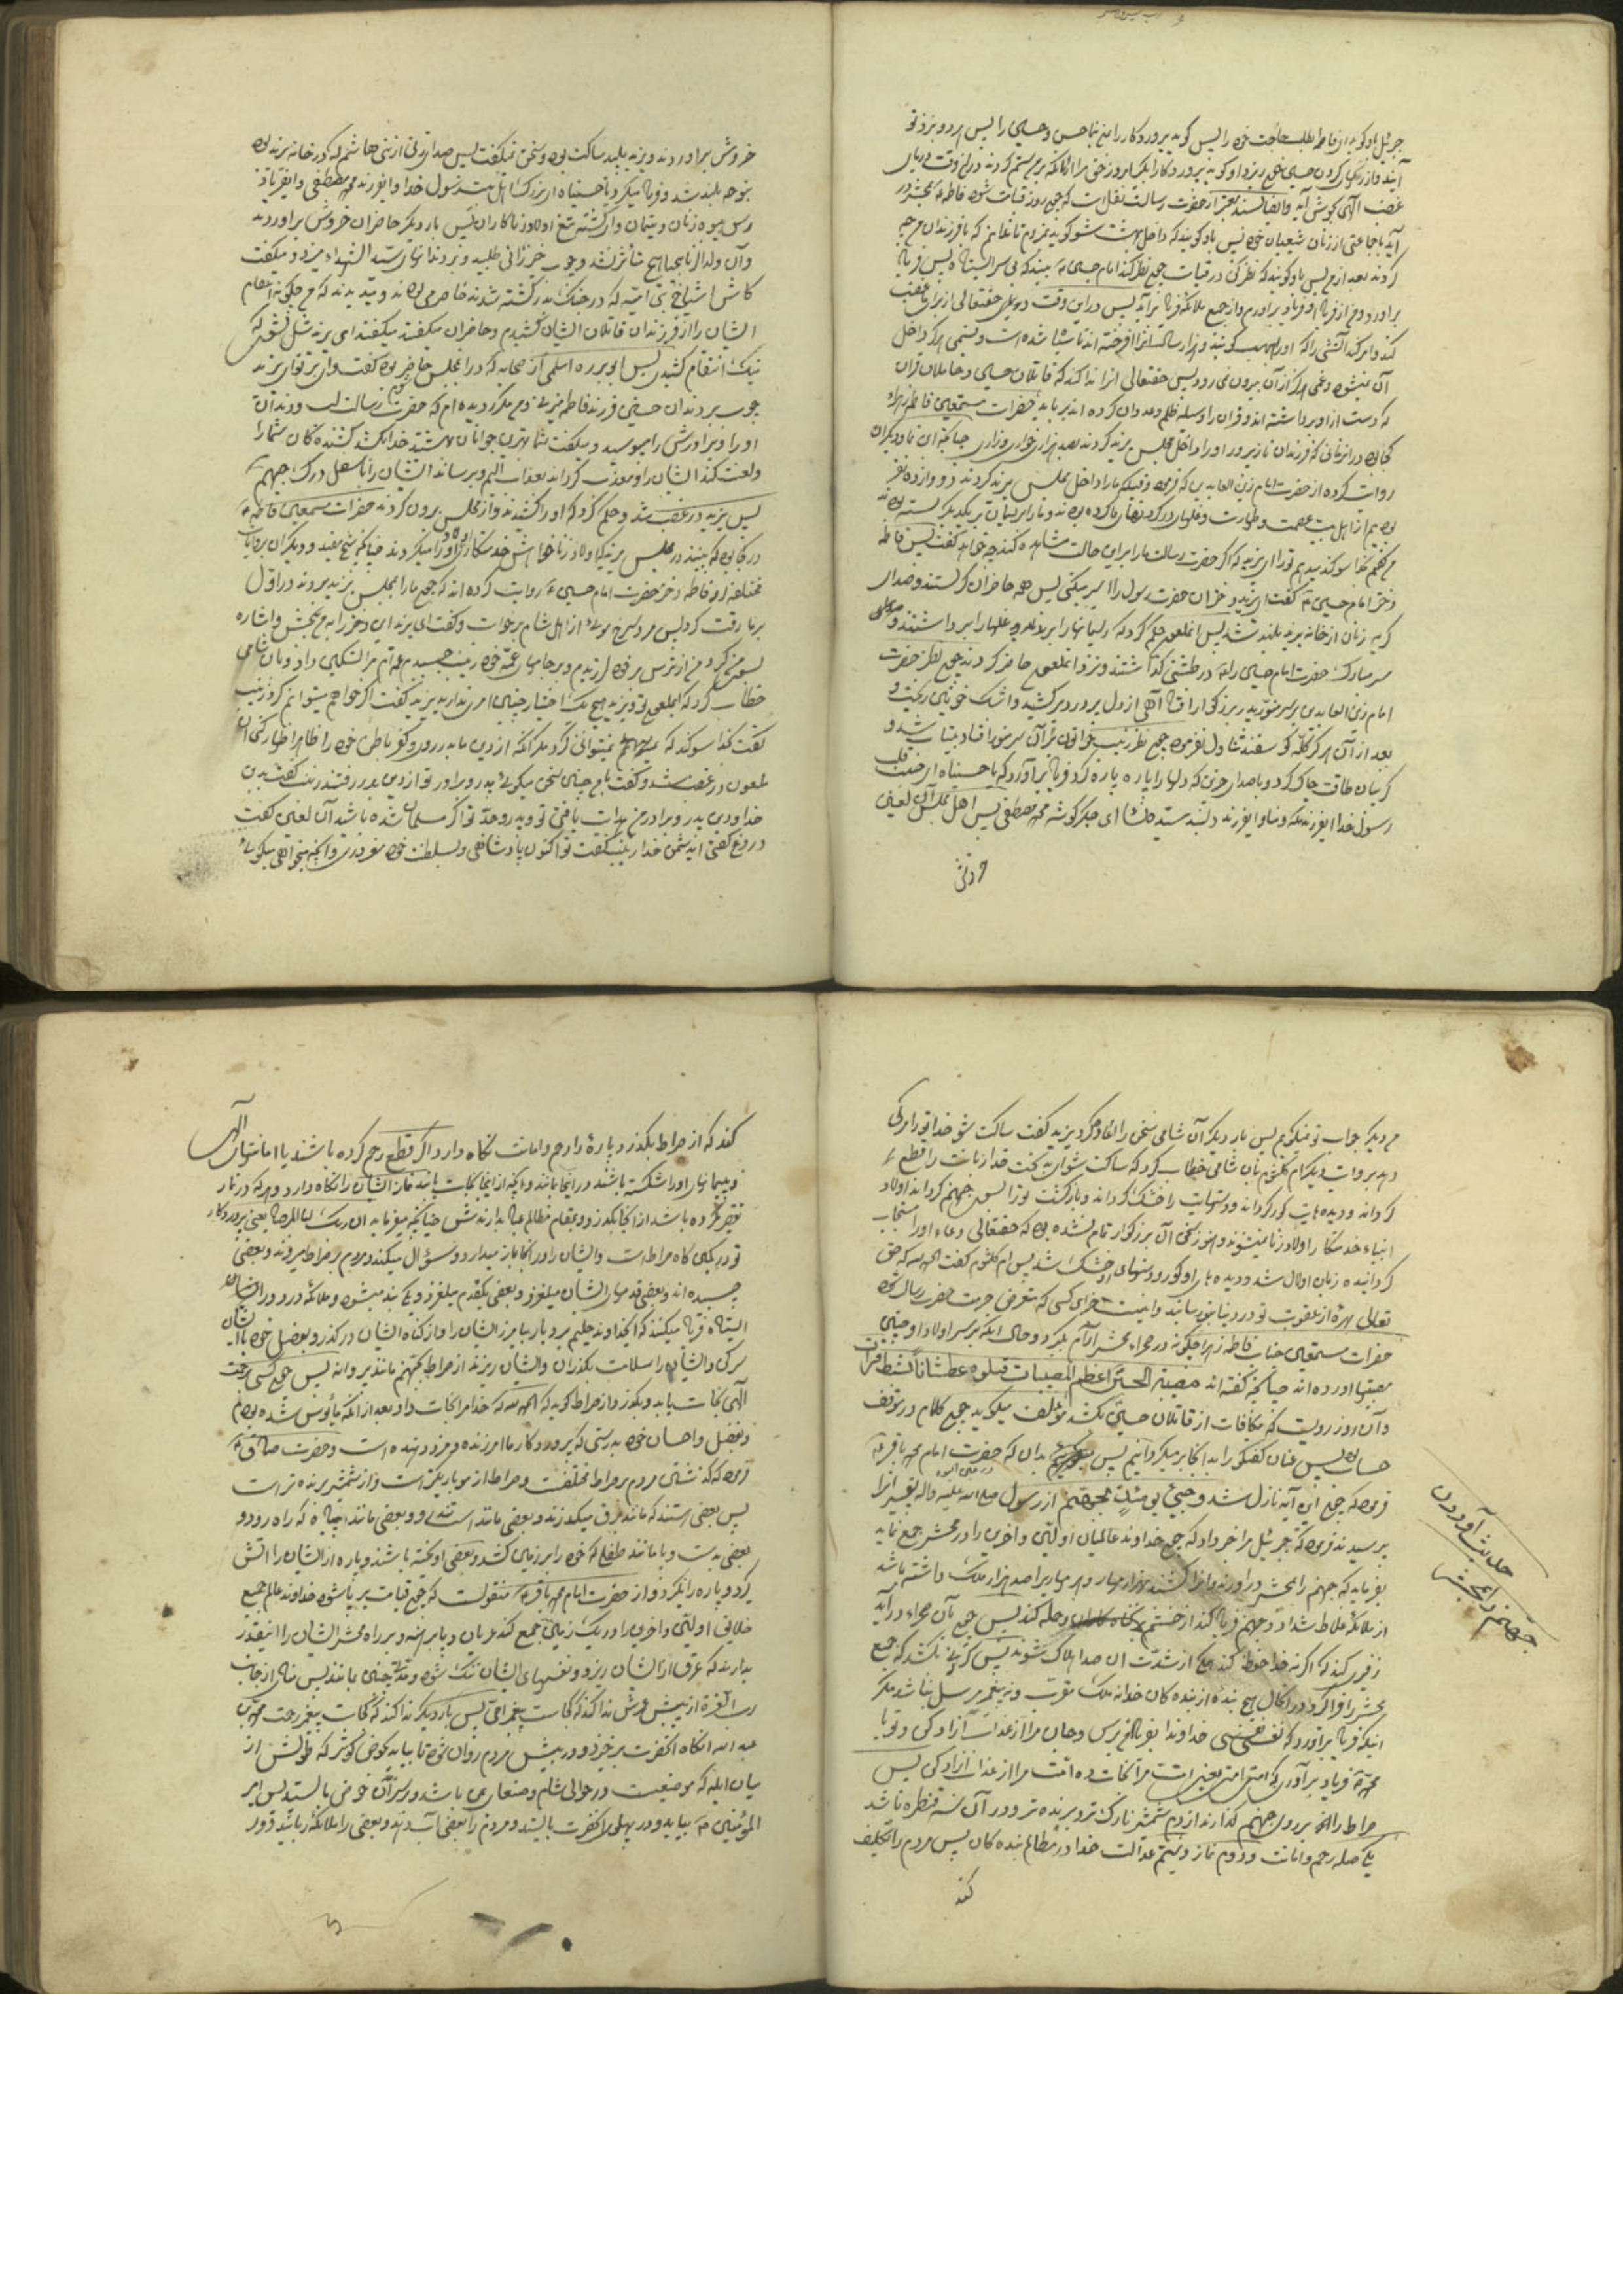 جبرئیل باو گوید ای فاطمه بطلب حاجت خود را پس گوید پروردگارا بمن بنما حسن و حسین را پس
آیند و از رگهای گردن حسین خون ریزد و او گوید پروردگارا بگیر امروز حق مرا از آنکه بر من ستم کرده در این وقت دریای
غضب الهی بجوش آید و ایضا بسند معتبر از حضرت رسالت نقل است که چون روز قیامت شود فاطمه ع بمحشر در
آید با جماعتی از زنان شیعیان خود پس باو گویند که داخل بهشت شو گوید نمیروم تا بدانم که با فرزندان من چه
کردند بعد از من پس باو گویند که نظر کن در قیامت چون نظر کند امام حسین ع را بیند که بی سر ایستاده پس فریاد
برآورد و من از فریاد او فریاد برآورم و از جمیع ملائکه فریاد برآید پس در این وقت حقتعالی از برای ما غضب
کند و امر کند آتشی را که او را هبهب گویند و هزار سال آنرا افروخته اند تا سیاه شده است و نسیمی هرگز داخل
آن نمیشود و غمی هرگز از آن بیرون نمیرود پس حقتعالی آنرا ندا کند که قاتلان حسین و حاملان قرآن
که دست از او برداشته اند و قرآن را وسیله ظلم و عدوان کرده اند برباید حضرات مستمعین فاطمه زهراء
کجا بود در آنزمانی که فرزندان نازپرور او را داخل مجلس یزید کردند بصد هزار خواری و زاری چنانکه ابن نما و دیگران
روایت کرده از حضرت امام زین العابدین که فرمود وقتیکه ما را داخل مجلس یزید کردند دوازده نفر
بودیم از اهل بیت عصمت و طهارت و غلها در گردنهای ما کرده بودند و ما را بریسمان بر یکدیگر بسته بودند
من گفتم بخدا سوگند میدهم تو را ای یزید که اگر حضرت رسالت ما را بر این حالت مشاهده کند چه خواهد گفت پس فاطمه
دختر امام حسین ع گفت ای یزید دختران حضرت رسول را اسیر میکنی پس همه حاضران گریستند و صدای
گریه زنان از خانه یزید بلند شد پس آنملعون حکم کرد که ریسمانها را بریدند و غلها را برداشتند و
سر مبارک حضرت امام حسین را در طشتی گذاشتند و نزد آنملعون حاضر کردند چون نظر حضرت
امام زین العابدین بر سر منور پدر بزرگوار افتاد آهی از دل پر درد برکشید و اشک خونین ریخت و
بعد از آن هرگز کله گوسفند تناول نفرمود چون نظر زینب خواتون بر آن سر منور افتاد بیتاب شد و
گریبان طاقت چاک کرد و با صدای حزین که دلها را پاره پاره کرد فریاد برآورد که یا حسیناه ای حبیب قلب
رسول خدا ای فرزند مکه و منا و ای فرزند دلبند سیده نساء ای جگر گوشه محمد مصطفی پس اهل مجلس آن لعین
خروش
خروش برآوردند و یزید پلید ساکت بود و سخن نمیگفت پس صدای زنی از بنی هاشم که در خانه یزید بود
بنوحه بلند شد و فریاد میکرد یا حسیناه ای بزرگ اهل بیت رسول خدا و ای فرزند محمد مصطفی و ای فریاد
رس بیوه زنان و یتیمان و ای کشته تیغ اولاد زناکاران پس بار دیگر حاضران خروش برآوردند
و آن ولدالزنا بیحیا هیچ متأثر نشد و چوب خیزرانی طلبید و بر دندانهای سید الشهداء میزد و میگفت
کاش اشیاخ بنی امیه که در جنگ بدر کشته شدند حاضر می بودند و میدیدند که من چگونه انتقام
ایشان را از فرزندان قاتلان ایشان کشیدم و حاضران میگفتند میگفتند ای یزید شل نشوی که
نیک انتقام کشیدی پس ابو برزه اسلمی از صحابه که در آن مجلس حاضر بود گفت وای بر تو ای یزید
چوب بر دندان حسین فرزند فاطمه میزنی و من مکرر دیده ام که حضرت رسالت لب و دندان
او را و برادرش را میبوسید و میگفت شما بهترین جوانان بهشتید خدا بکشد کشنده گان شما را
و لعنت کند ایشان را و معذب گرداند بعذاب الیم و برساند ایشان را با سفل درک جهنم
پس یزید در غضب شد و حکم کرد که او را کشیدند و از مجلس بیرون کردند حضرات مستمعین فاطمه ع
در کجا بود که ببیند در مجلس یزید اولاد زنا خواهش خدمتکاری اولاد او را میکردند چنانکه شیخ مفید و دیگران بروایات
مختلفه از فاطمه دختر حضرت امام حسین ع روایت کرده اند که چون ما را بمجلس یزید بردند در اول
بر ما رقت کرد پس مرد سرخ موئی از اهل شام برخواست و گفت ای یزید این دختر را بمن بخش و اشاره
بسوی من کرد من از ترس بر خود لرزیدم و بر جامهای عمه خود زینب چسبیدم عمه ام مرا تسکین داد و بآن شامی
خطاب کرد که ایملعون تو و یزید هیچ یک اختیار چنین امری ندارید یزید گفت اگر خواهم میتوانم کرد زینب
گفت بخدا سوگند که نمیتوانی کرد مگر آنکه از دین ما بدر روی و کفر باطن خود را ظاهر اظهار کنی آن
لعون در غضب شد و گفت با من چنین سخن میگوئی پدر و برادر تو از دین بدر رفتند زینب گفت بدین
خدا و دین پدر و برادر من هدایت یافتی تو و پدر و جد تو اگر مسلمان شده باشند آن لعین گفت
دروغ گفتی ای دشمن خدا زینب گفت تو اکنون پادشاهی و بسلطنت خود مغروری و آنچه میخواهی میگوئی
من دیگر جواب تو نمیگویم پس بار دیگر آن شامی سخن را اعاده کرد یزید گفت ساکت شو خدا تو را مرگی
دهد بروایت دیگر ام کلثوم بآن شامی خطاب کرد که ساکت شو ای بدبخت خدا زبانت را قطع
گرداند و دیده هایت کور گرداند و دستهایت را خشک گرداند و بازگشت تو را بسوی جهنم گرداند اولاد
انبیاء خدمتکار اولاد زنا نمیشوند هنوز سخن آن بزرگوار تمام نشده بود که حقتعالی دعاء او را مستجاب
گردانیده زبان او لال شد و دیده های او کور و دستهای او خشک شد پس ام کلثوم گفت الحمد لله که حق
تعالی بهره از عقوبت تو در دنیا بتو رسانید و اینست جزای کسی که متعرض حرمت حضرت رسالت شود
حضرات مستمعین جناب فاطمه زهرا چگونه در صحراء محشر آرام بگیرد و حال آنکه بر سر اولاد او چنین
مصیبتها آورده اند چنانکه گفته اند مصیبة الحسین اعظم المصیبات قتلوه عطشاناً بشط فرات
و آن روز روزیست که مکافات از قاتلان حسین بکشد مؤلف میگوید چون کلام در موقف
حساب بود پس عنان گفتگو را بدانجا بر میگردانیم پس بدان که حضرت امام محمد باقر ع
فرمود که چون این آیه نازل شد و جیئ یومئذ بجهنم از رسول صلی الله علیه و آله تفسیر آنرا
پرسیدند فرمود که جبرئیل مرا خبر داد که چون خداوند عالمیان اولین و آخرین را در محشر جمع نماید
بفرماید که جهنم را بمحشر درآورند و آنرا کشند بهزار مهار و هر مهار را صد هزار ملک داشته باشد
از ملائکه غلاظ شداد و جهنم فریاد کند از خشم و حمله کند پس چون بآن صحراء درآید
زفیری کند که اگر نه خدا حفظ کند همه از شدت آن صدا هلاک شوند پس گردنی بکشد که جمیع
محشر را فرا گیرد و در آنحال هیچ بنده از بنده گان خدا نه ملک مقرب و نه پیغمبر مرسل نباشد مگر
اینکه فریاد برآورد که نفسی نفسی خداوندا بفریاد من برس و جان مرا از عذاب آزاد کن و تو یا
محمد فریاد برآوری که امتی امتی یعنی امت مرا نجات ده امت مرا از عذاب آزاد کن پس
صراط را بر روی جهنم گذارند از دم شمشیر نازکتر و برنده تر و در آن سه قنطره باشد
یکی صله رحم و امانت و دوم نماز و سیّم عدالت خدا در مظالم بنده گان پس مردم را تکلیف
کنند
حدیث آوردن
جهنم را بمحشر
کنند که از صراط بگذرد پاره را رحم و امانت نگاه دارد اگر قطع رحم کرده باشند یا امانتهای الهی
و پیمانهای او را شکسته باشند در اینجا بمانند و آنچه از اینجا نجات یابند نماز ایشان را نگاه دارد و هر که در نماز
تقصیر کرده باشد از اینجا بگذرد و بمقام مظالم عباد بدارندش چنانکه میفرماید ان ربک لبالمرصاد یعنی پروردگار
تو در کمین گاه صراط است و ایشان را در آنجا باز میدارد و سؤال میکند و مردم بر صراط میروند و بعضی
چسبیده اند و بعضی قدمهای ایشان میلغزد و بعضی یکقدم میلغزد و یک بند میشود و ملائکه در دور ایشان
ایستاده فریاد میکنند که ایخداوند حلیم بردبار بیامرز ایشان را و از گناه ایشان در گذر و بفضل خود با ایشان
سر کن و ایشان را سلامت بگذران و ایشان ریزند از صراط بجهنم مانند پروانه پس چون کسی برحمت
الهی نجات یابد و بگذرد از صراط گوید که الحمد لله که خدا مرا نجات داد بعد از آنکه مأیوس شده بودم
بفضل و احسان خود بدرستی که پروردگار ما آمرزنده و مزد دهنده است و حضرت صادق ع
فرمود که گذشتن مردم بر صراط مختلفست و صراط از مو باریکتر است و از شمشیر برنده تر است
پس بعضی هستند که مانند برق میگذرند و بعضی مانند اسب تندرو و بعضی مانند پیاده که راه رود و
بعضی بدست و پا مانند طفلی که خود را بر زمین کشد و بعضی آویخته باشند و پاره از ایشان را آتش
گیرد و پاره را نگیرد و از حضرت امام محمد باقر ع منقولست که چون قیامت بر پا شود خداوند عالم جمیع
خلایق اولین و آخرین را در یک زمین جمع کند عریان و پا برهنه و بر راه محشر ایشان را آنقدر
بدارند که عرق از ایشان ریزد و نفسهای ایشان تنگ شود و مدتی چنین بمانند پس منادی از جانب
رب العزة از پیش عرش ندا کند که کجاست پیغمبر امی پس بار دیگر ندا کند که کجاست پیغمبر رحمت محمد بن
عبد الله آنگاه آنحضرت برخیزد و در پیش مردم روان شود تا بیاید بحوض کوثر که طولش از
میان ایله که موضعیست در حوالی شام و صنعا یمن باشد و بر سر آن حوض بایستد پس امیر
المؤمنین ع بیاید و در پهلوی آنحضرت بایستد و مردم را بعضی آب دهند و بعضی را ملائکه ربانیه دور